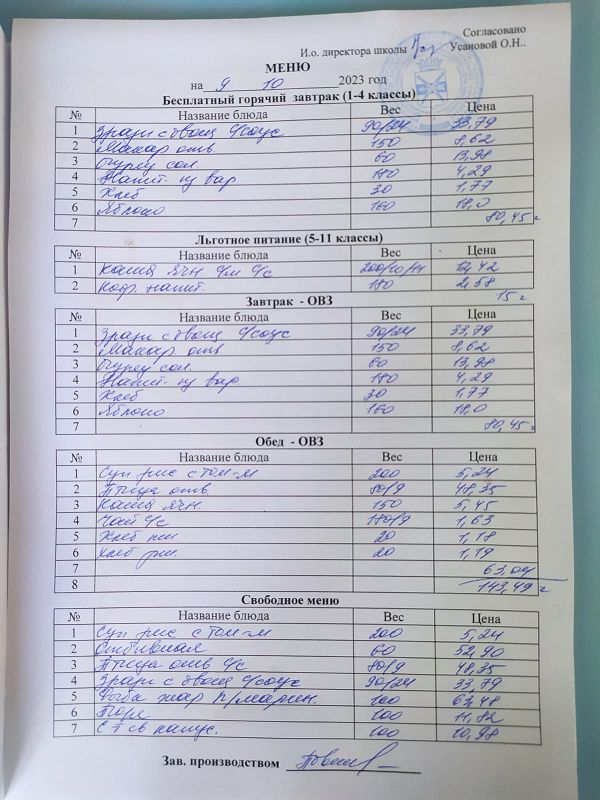 Согласовано
И.о. директора школы Усановой О.Н..
МЕНЮ
на 9 10 2023 год
Бесплатный горячий завтрак (1-4 классы)
№ Название блюда Вес Цена
1 Зразы с овощ 90/24 33,79
2 Макар отв 150 8,62
3 Огурец сол. 60 13,98
4 Напит. 180 4,29
5 Хлеб 30 1,77
6 Яблоко 160 18,0
7 80,45 г
Льготное питание (5-11 классы)
№ Название блюда Вес Цена
1 Каша ячн 12,42
2 Коф. напит. 180 2,58
15 г
Завтрак - ОВЗ
№ Название блюда Вес Цена
1 Зразы с овощ 90/24 33,79
2 Макар отв 150 8,62
3 Огурец сол. 60 13,98
4 Напит. 180 4,29
5 Хлеб 30 1,77
6 Яблоко 160 18,0
7 80,45 г
Обед - ОВЗ
№ Название блюда Вес Цена
1 Суп рис с том-м 200 5,24
2 Птица отв 80/9 48,35
3 Каша ячн. 150 5,45
4 Чай 180/9 1,63
5 Хлеб пш 20 1,18
6 хлеб рж. 20 1,19
7 63,04
8 143,49 г
Свободное меню
№ Название блюда Вес Цена
1 Суп рис с том-м 200 5,24
2 Отбивная 60 52,90
3 Птица отв 80/9 48,35
4 Зразы с овощ 90/24 33,79
5 Рыба жар п/марин. 100 63,48
6 Пюре 100 11,82
7 капус. 100 10,98
Зав. производством